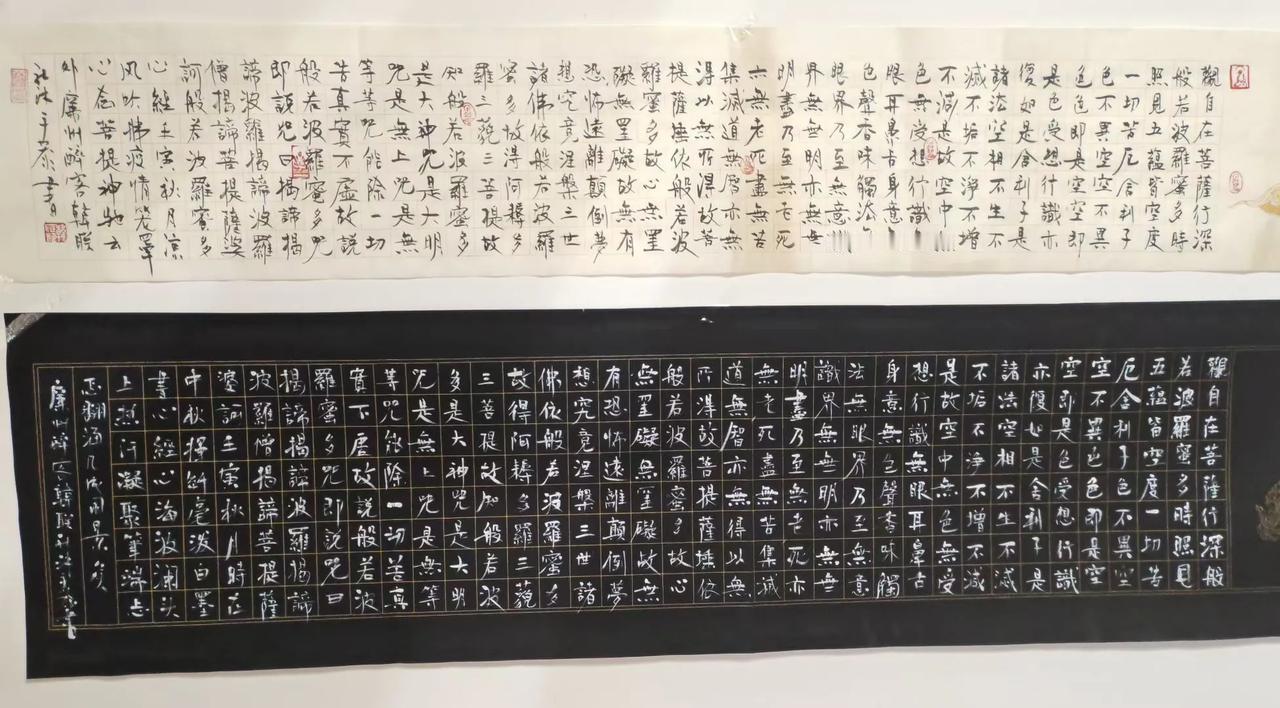 觀自在菩薩行深
般若波羅蜜多時
照見五蘊皆空度
一切苦厄舍利子
色不異空空不異
色色即是空空即
是色受想行識亦
復如是舍利子是
諸法空相不生不
滅不垢不淨不增
不減是故空中
色無受想行識
眼耳鼻舌身意
色聲香味觸法
眼界乃至無意
界無無明亦無
明盡乃至無老死
六無老死盡無苦
集滅道無智亦無
得以無所得故菩
提薩埵依般若波
羅蜜多故心無罣
礙無罣礙故無有
恐怖遠離顛倒夢
想究竟涅槃三世
諸佛依般若波羅
蜜多故得阿耨多
羅三藐三菩提故
知般若波羅蜜多
是大神咒是大明
咒是無上咒是無
等等咒能除一切
苦真實不虛故說
般若波羅蜜多咒
即說咒曰揭諦揭
諦波羅揭諦波羅
僧揭諦菩提薩婆
訶般若波羅蜜多
心經壬寅秋月涼
風吹拂疫情
心在菩提神馳云
外廉州醉客韓联
觀自在菩薩行深般
若波羅蜜多時照見
五蘊皆空度一切苦
厄舍利子色不異空
空不異色色即是空
空即是色受想行識
亦復如是舍利子是
諸法空相不生不滅
不垢不淨不增不減
是故空中無色無受
想行識無眼耳鼻舌
身意無色聲香味觸
法無眼界乃至無意
識界無無明亦無無
明盡乃至無老死亦
無老死盡無苦集滅
道無智亦無得以無
所得故菩提薩埵依
般若波羅蜜多故心
無罣礙無罣礙故無
有恐怖遠離顛倒夢
想究竟涅槃三世諸
佛依般若波羅蜜多
故得阿耨多羅三藐
三菩提故知般若波
多是大神咒是大明
咒是無上咒是無等
等咒能除一切苦真
實不虛故說般若波
羅蜜多咒即說咒曰
揭諦揭諦波羅揭諦
波羅僧揭諦菩提薩
婆訶壬寅秋月時在
中秋揮毫潑白墨
書心經心海波瀾头
上热汗凝聚筆端忘
廉州醉客韓联